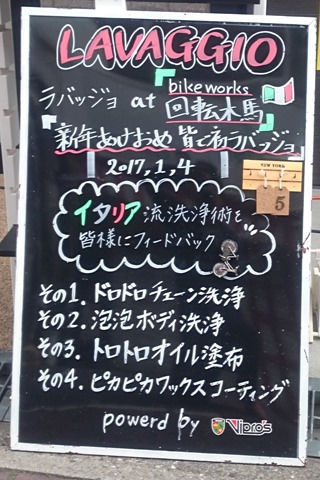 LAVAGGIO
ラバッジョ at 「bike works 回転木馬」
新年あけおめ 皆で初ラバッジョ
2017,1,4
NEW YORK
5
イタリア流洗浄術を
皆様にフィードバック
その1. ドロドロチェーン洗浄
その2. 泡泡ボディ洗浄
その3. トロトロオイル塗布
その4. ピカピカワックスコーティング
powerd by Vipro's